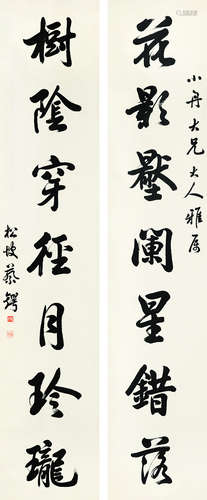 花影壓闌星錯落
小舟大兄大人雅属
樹陰穿徑月玲瓏
松坡蔡鍔